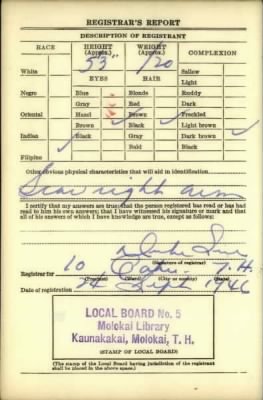 REGISTRAR'S REPORT
DESCRIPTION OF REGISTRANT
RACE
HEIGHT (Approx.)
WEIGHT (Approx.)
COMPLEXION
53"
120
White
Sallow
EYES
HAIR
Light
Negro
Blue
Blonde
Ruddy
Gray
Red
Dark
Oriental
Hazel
Brown
Freckled
Brown
Black
Light brown
Indian
Black
Gray
Dark brown
Bald
Black
Filipino
Other obvious physical characteristics that will aid in identification
Scar right arm
I certify that my answers are true; that the person registered has read or has had
read to him his own answers; that I have witnessed his signature or mark and that
all of his answers of which I have knowledge are true, except as follows:
(Signature of registrar)
Registrar for 10 T. H.
(Precinct) (Ward) (City or county) (State)
Date of registration 24 Sept 1946
LOCAL BOARD No. 5
Molokai Library
Kaunakakai, Molokai, T. H.
(STAMP OF LOCAL BOARD)
(The stamp of the Local Board having jurisdiction of the registrant
shall be placed in the above space.)